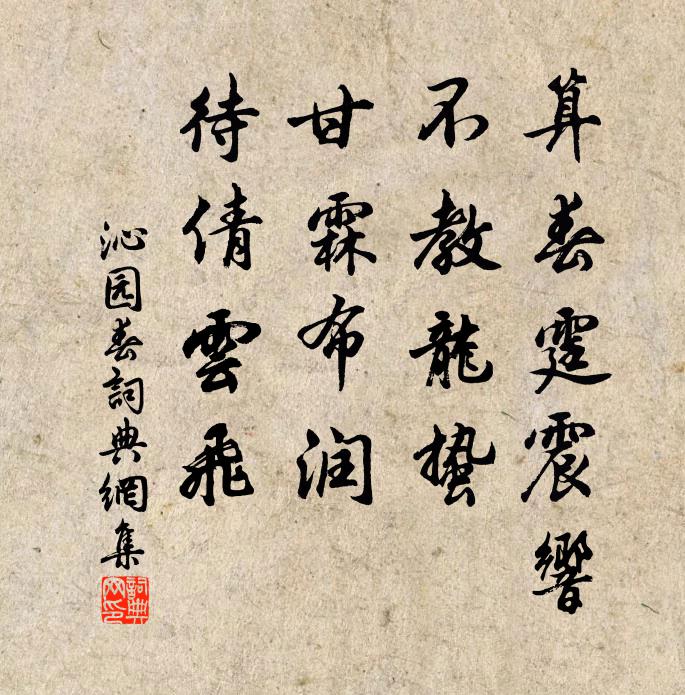 算春霆震響
不教龍蟄
甘霖布润
待倩雲飛
沁园春詞典網集
詞典網印